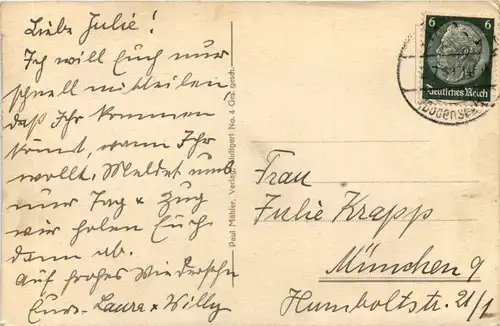 Liebe Julie!
Ich will Euch nur
schnell mitteilen
daß Ihr kommen
könnt, wann Ihr
wollt. Meldet uns
nur Tag & Zug
wir holen Euch
dann ab.
Auf frohes Wiedersehn
Eure Laura & Willy
Paul Mähler, Verlag, Stuttgart No. 4 Ges. gesch.
6 6
Deutsches Reich
(Bodensee)
Frau
Julie Krapp
München 9
Humboltstr. 21/1